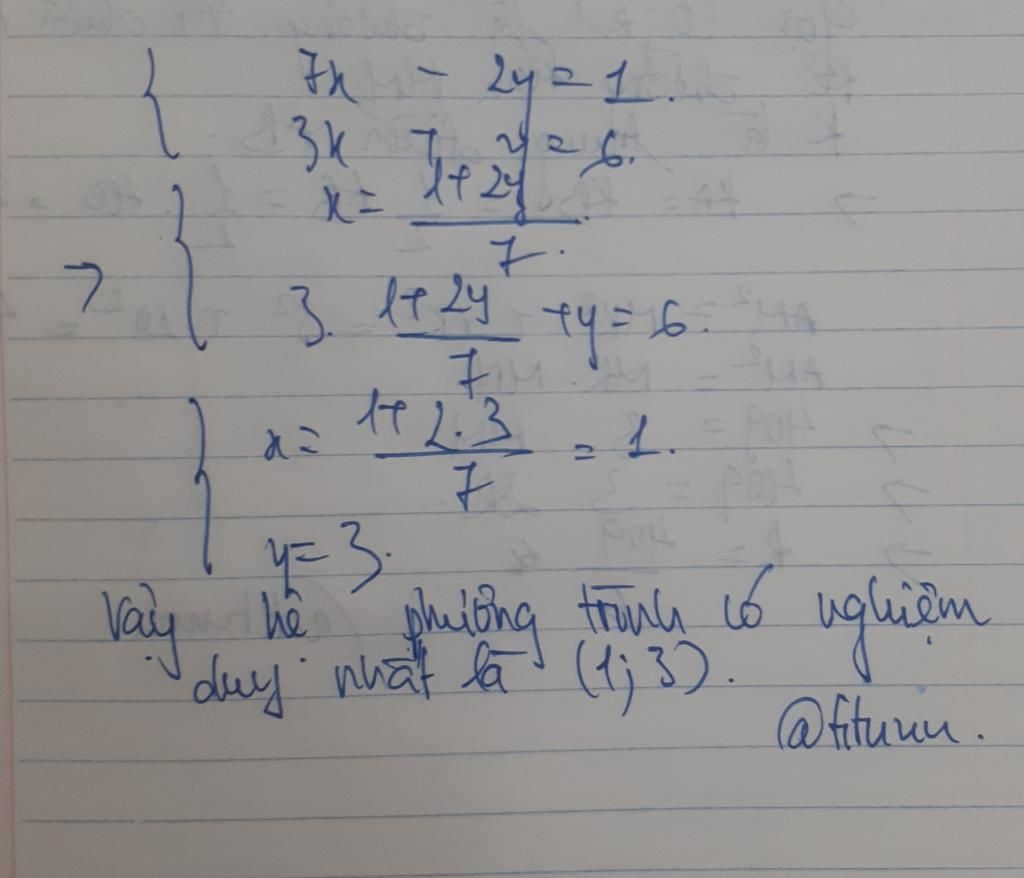 { 7x - 2y = 1.
3x + y = 6.
→ { x = (1+2y)/7.
3. (1+2y)/7 + y = 6.
{ x = (1+2.3)/7 = 1.
y = 3.
Vậy hệ phương trình có nghiệm
duy nhất là (1; 3).